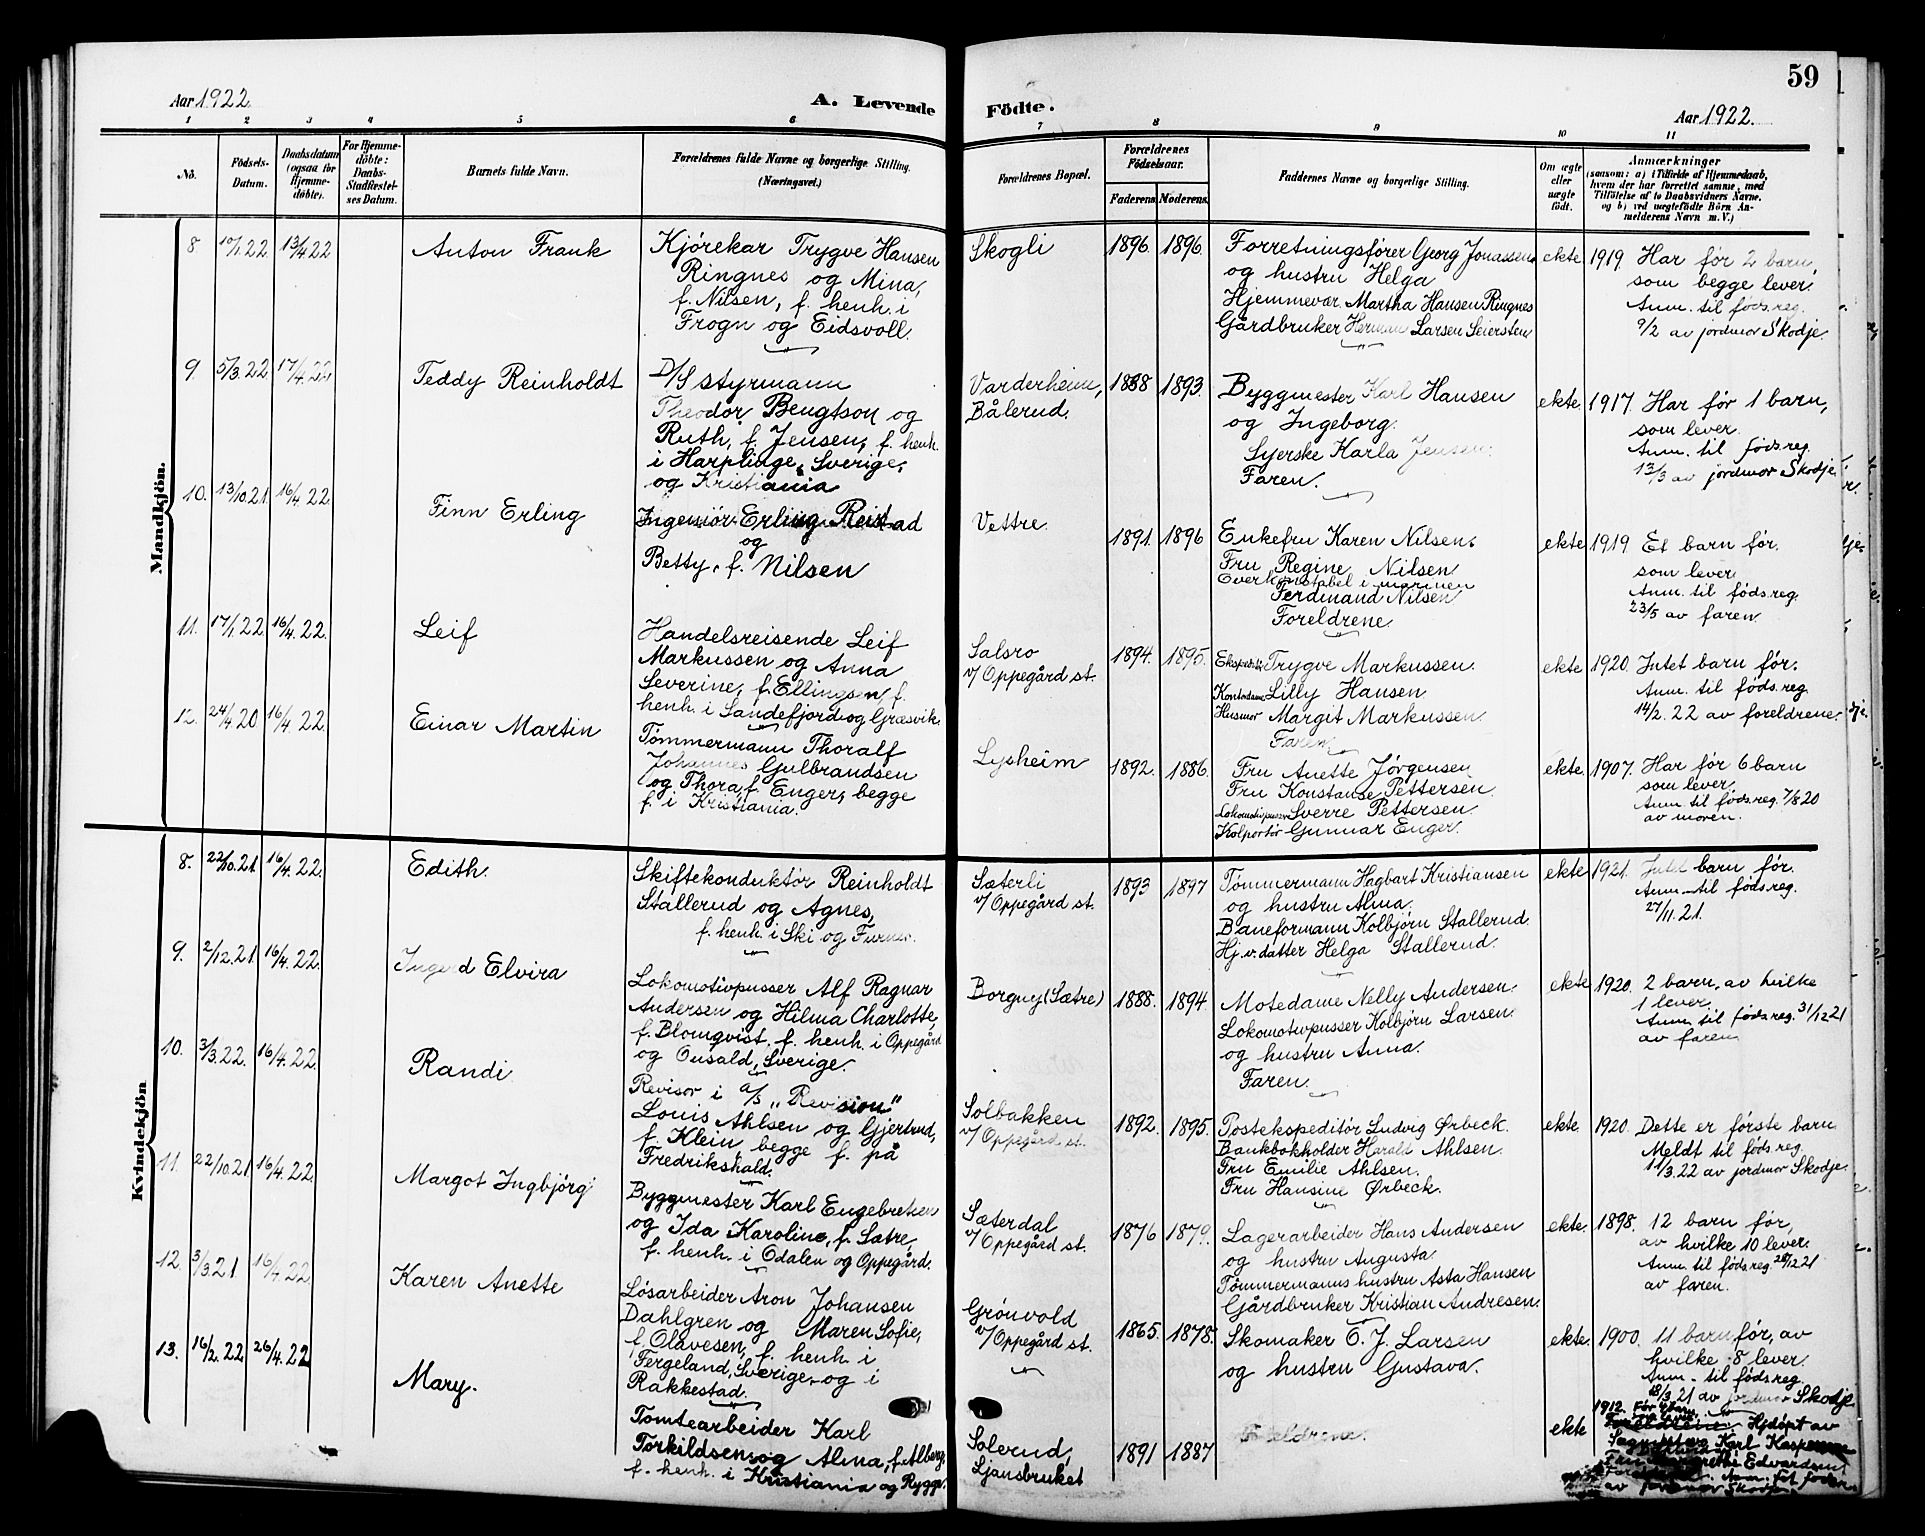 59
Aar 1922
A. Levende
Födte.
Aar 1922.
1 2 3 4 5 6 7 8 9 10 11
No.
Födsels-
Datum.
Daabsdatum
(ogsaa for
Hjemme-
döbte).
For Hjemme-
döbte:
Daabs-
Stadfæstel-
ses Datum.
Barnets fulde Navn.
Forældrenes fulde Navne og borgerlige Stilling.
(Næringsvei.)
Forældrenes Bopæl.
Forældrenes
Födselsaar.
Faderens. Moderens.
Faddernes Navne og borgerlige Stilling.
Om ægte
eller
uægte
födt.
Anmærkninger
(saasom: a) i Tilfælde af Hjemmedaab,
hvem der har forrettet samme, med
Tilföielse af to Daabsvidners Navne.
og b) ved uægtefödte Börn An-
melderens Navn m. V.)
Mandkjön.
8. 10/1.22 13/4 22 Anton Frank
Kjørekar Trygve Hansen
Ringnes og Mina,
f. Nilsen, f. henh. i
Frogn og Eidsvoll.
Skogli 1896. 1896.
Forretningsfører Georg Jonassen
og hustru Helga
Hjemmevær. Martha Hansen Ringnes
Gårdbruker Herman Larsen Seiersten
ekte 1919. Har før 2 barn,
som begge lever.
Anm. til føds.reg.
9/2 av jordmor Skodje.
9. 5/3.22. 17/4.22 Teddy Reinholdt
D/S styrmann
Theodor Bengtson og
Ruth, f. Jensen, f. henh.
i Harplinge, Sverige,
og Kristiania
Varderheim,
Bålerud.
1888 1893.
Byggmester Karl Hansen
og Ingeborg.
Syerske Karla Jensen.
Faren.
ekte. 1917. Har før 1 barn,
som lever.
Anm. til føds.reg.
13/3 av jordmor Skodje.
10. 13/10.21. 16/4.22. Finn Erling
Ingeniør Erling Reistad
og
Betty, f. Nilsen
Vettre. 1891. 1896
Enkefru Karen Nilsen.
Fru Regine Nilsen
Overkonstabel i marinen
Ferdinand Nilsen
Foreldrene.
ekte 1919 Et barn før.
som lever.
Anm. til føds.reg.
23/5 av faren.
11. 17/1.22. 16/4.22. Leif
Handelsreisende Leif
Markussen og Anna
Severine, f. Ellingsen, f.
henh. i Sandefjord og Græsvik.
Salsro
v/ Oppegård st.
1894. 1895.
Ekspeditør Trygve Markussen.
Kontordame Lilly Hansen.
Husmor Margit Markussen.
Faren.
ekte 1920. Intet barn før.
Anm. til føds.reg.
14/2.22 av foreldrene.
12. 24/4 20 16/4.22. Einar Martin
Tømmermann Thoralf
Johannes Gulbrandsen
og Thora, f. Enger, begge
f. i Kristiania.
Lysheim 1892. 1886.
Fru Anette Jørgensen
Fru Konstanse Pettersen.
Lokomotivpusser Sverre Pettersen.
Kolportør Gunnar Enger.
ekte. 1907. Har før 6 barn
som lever.
Anm til føds.reg. 7/8 20
av moren.
Kvindekjön
8. 22/10.21. 16/4.22. Edith.
Skiftekonduktør Reinholdt
Stallerud og Agnes,
f. henh. i Ski og Furnes.
Sæterli
v/ Oppegård st.
1893 1897
Tømmermann Hagbart Kristiansen
og hustru Alma.
Baneformann Kolbjørn Stallerud.
Hj.v. datter Helga Stallerud.
ekte 1921. Intet barn før.
Anm. til føds.reg.
27/11.21.
9. 2/12.21. 16/4.22. Ingerd Elvira
Lokomotivpusser Alf Ragnar
Andersen og Hilma Charlotte,
f. Blomqvist, f. henh. i Oppegård
og Onsald, Sverige.
Borgny (Sætre) 1888. 1894.
Motedame Nelly Andersen.
Lokomotivpusser Kolbjørn Larsen
og hustru Anna.
Faren.
ekte 1920. 2 barn, av hvilke
1 lever.
Anm. til føds.reg. 31/12 21
av faren
10. 3/3.22. 16/4.22. Randi
Revisor i a/s "Revision"
Louis Ahlsen og Gjertrud,
f. Klein, begge f. på
Fredrikshald.
Solbakken
v/ Oppegård st.
1892. 1895.
Postekspeditør Ludvig Ørbeck.
Bankbokholder Harald Ahlsen.
Fru Emilie Ahlsen.
Fru Hansine Ørbeck.
ekte. 1920. Dette er første barn.
Meldt til føds.reg.
11/3.22 av jordmor Skodje.
11. 22/10.21. 16/4.22. Margot Ingbjørg
Byggmester Karl Engebretsen
og Ida Karoline, f. Sætre,
f. henh. i Odalen og Oppegård.
Sæterdal
v/ Oppegård st.
1876 1879.
Lagerarbeider Hans Andersen
og hustru Augusta.
Tømmermanns hustru Asta Hansen
Gårdbruker Kristian Andresen.
ekte. 1898. 12 barn før,
av hvilke 10 lever.
Anm. til føds.reg. 28/12 21
av faren.
12. 3/3.21. 16/4.22. Karen Anette
Løsarbeider Aron Johansen
Dahlgren og Maren Sofie,
f. Olavesen, f. henh. i
Fergeland, Sverige, og i
Rakkestad.
Grönvold
v/ Oppegård st.
1865. 1878.
Skomaker O. J. Larsen
og hustru Gustava.
ekte. 1900. 11 barn før, av
hvilke 8 lever.
Anm. til føds.reg.
18/3.21 av jordmor Skodje
13. 16/2.22. 26/4.22 Mary.
Tomtearbeider Karl
Torkildsen og Alma, f. Alberg,
f. henh. i Kristiania og Rygge.
Solerud,
Ljansbruket
1891 1887
Foreldrene.
ekte 1912. Før
Hjdøpt av
Karl Kaspersen
Fru Edvardsen
av jordmor Skodje